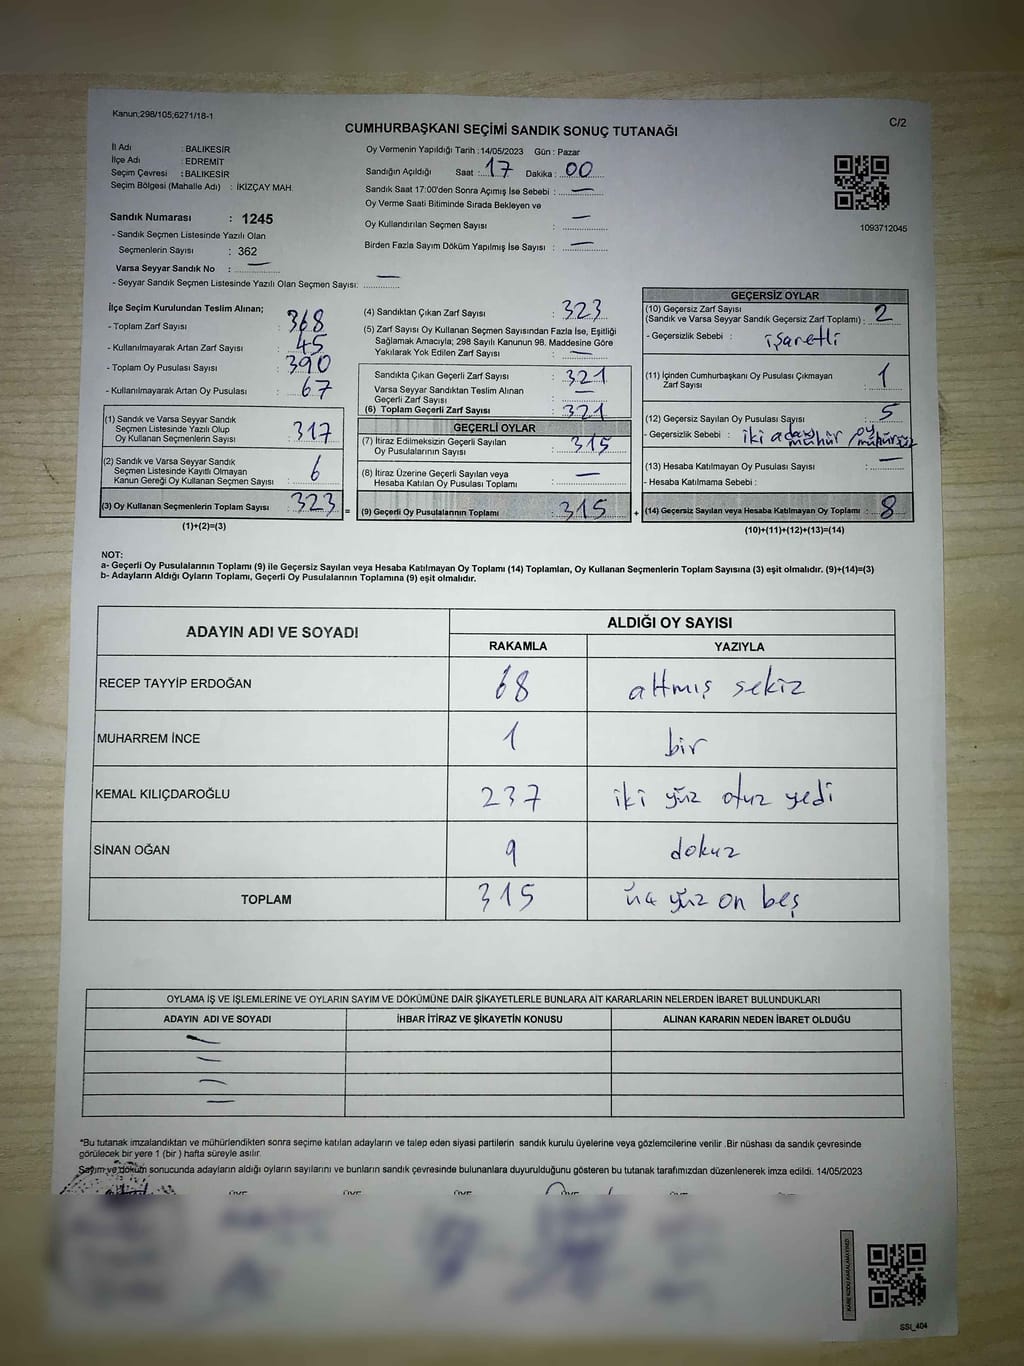 Kanun;298/105;6271/18-1
C/2
CUMHURBAŞKANI SEÇİMİ SANDIK SONUÇ TUTANAĞI
İl Adı : BALIKESİR
İlçe Adı : EDREMİT
Seçim Çevresi : BALIKESİR
Seçim Bölgesi (Mahalle Adı) : İKİZÇAY MAH.
Sandık Numarası : 1245
- Sandık Seçmen Listesinde Yazılı Olan
Seçmenlerin Sayısı : 362
Varsa Seyyar Sandık No : —
- Seyyar Sandık Seçmen Listesinde Yazılı Olan Seçmen Sayısı: —
Oy Vermenin Yapıldığı Tarih :14/05/2023 Gün : Pazar
Sandığın Açıldığı Saat : 17 Dakika : 00
Sandık Saat 17:00'den Sonra Açımış İse Sebebi : —
Oy Verme Saati Bitiminde Sırada Bekleyen ve
Oy Kullandırılan Seçmen Sayısı : —
Birden Fazla Sayım Döküm Yapılmış İse Sayısı : —
1093712045
İlçe Seçim Kurulundan Teslim Alınan;
- Toplam Zarf Sayısı : 368
- Kullanılmayarak Artan Zarf Sayısı : 45
- Toplam Oy Pusulası Sayısı : 390
- Kullanılmayarak Artan Oy Pusulası : 67
(1) Sandık ve Varsa Seyyar Sandık
Seçmen Listesinde Yazılı Olup
Oy Kullanan Seçmenlerin Sayısı : 317
(2) Sandık ve Varsa Seyyar Sandık
Seçmen Listesinde Kayıtlı Olmayan
Kanun Gereği Oy Kullanan Seçmen Sayısı : 6
(3) Oy Kullanan Seçmenlerin Toplam Sayısı : 323 =
(1)+(2)=(3)
(4) Sandıktan Çıkan Zarf Sayısı : 323
(5) Zarf Sayısı Oy Kullanan Seçmen Sayısından Fazla İse, Eşitliği
Sağlamak Amacıyla; 298 Sayılı Kanunun 98. Maddesine Göre
Yakılarak Yok Edilen Zarf Sayısı : —
Sandıkta Çıkan Geçerli Zarf Sayısı : 321
Varsa Seyyar Sandıktan Teslim Alınan
Geçerli Zarf Sayısı : —
(6) Toplam Geçerli Zarf Sayısı : 321
GEÇERLİ OYLAR
(7) İtiraz Edilmeksizin Geçerli Sayılan
Oy Pusulalarının Sayısı : 315
(8) İtiraz Üzerine Geçerli Sayılan veya
Hesaba Katılan Oy Pusulası Toplamı : —
(9) Geçerli Oy Pusulalarının Toplamı : 315 +
GEÇERSİZ OYLAR
(10) Geçersiz Zarf Sayısı
(Sandık ve Varsa Seyyar Sandık Geçersiz Zarf Toplamı) : 2
- Geçersizlik Sebebi : işaretli
(11) İçinden Cumhurbaşkanı Oy Pusulası Çıkmayan
Zarf Sayısı : 1
(12) Geçersiz Sayılan Oy Pusulası Sayısı : 5
- Geçersizlik Sebebi : iki adaya mühür / oy mühürsüz
(13) Hesaba Katılmayan Oy Pusulası Sayısı : —
- Hesaba Katılmama Sebebi :
(14) Geçersiz Sayılan veya Hesaba Katılmayan Oy Toplamı : 8
(10)+(11)+(12)+(13)=(14)
NOT:
a- Geçerli Oy Pusulalarının Toplamı (9) ile Geçersiz Sayılan veya Hesaba Katılmayan Oy Toplamı (14) Toplamları, Oy Kullanan Seçmenlerin Toplam Sayısına (3) eşit olmalıdır. (9)+(14)=(3)
b- Adayların Aldığı Oyların Toplamı, Geçerli Oy Pusulalarının Toplamına (9) eşit olmalıdır.
ADAYIN ADI VE SOYADI ALDIĞI OY SAYISI
RAKAMLA YAZIYLA
RECEP TAYYİP ERDOĞAN 68 altmış sekiz
MUHARREM İNCE 1 bir
KEMAL KILIÇDAROĞLU 237 iki yüz otuz yedi
SİNAN OĞAN 9 dokuz
TOPLAM 315 üç yüz on beş
OYLAMA İŞ VE İŞLEMLERİNE VE OYLARIN SAYIM VE DÖKÜMÜNE DAİR ŞİKAYETLERLE BUNLARA AİT KARARLARIN NELERDEN İBARET BULUNDUKLARI
ADAYIN ADI VE SOYADI İHBAR İTİRAZ VE ŞİKAYETİN KONUSU ALINAN KARARIN NEDEN İBARET OLDUĞU
—
—
—
—
*Bu tutanak imzalandıktan ve mühürlendikten sonra seçime katılan adayların ve talep eden siyasi partilerin sandık kurulu üyelerine veya gözlemcilerine verilir .Bir nüshası da sandık çevresinde
görülecek bir yere 1 (bir ) hafta süreyle asılır.
Sayım ve döküm sonucunda adayların aldığı oyların sayılarını ve bunların sandık çevresinde bulunanlara duyurulduğunu gösteren bu tutanak tarafımızdan düzenlenerek imza edildi. 14/05/2023
KARE KODU KARALAMAYINIZ
SSI_404